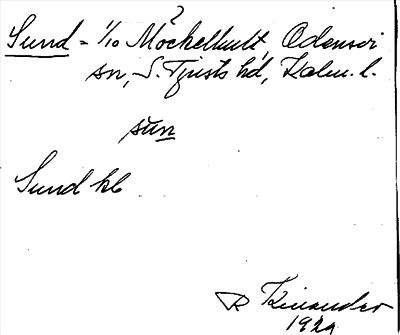 ?
Sund = 1/10 Möckelhult, Odensvi
sn, S. Tjusts hd, Kalm. l.
sun
Sund kb
R Kinander
1929